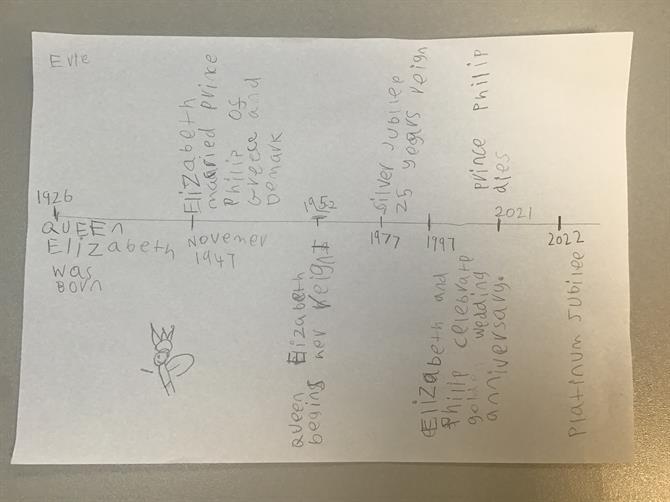 Evie
1926
QUEEN
Elizabeth
was
Born
Elizabeth
married prince
Philip of
Greece and
Demark
Novemer
1947
1952
Queen Elizabeth
begins her reign
Silver Jubilee
25 years reign
1977
1997
Elizabeth and
Philip celebrate
wedding
anniversary.
prince Philip
dies
2021
2022
Platinum Jubilee